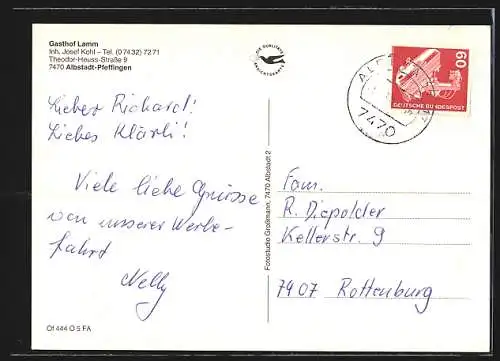 Gasthof Lamm
Inh. Josef Kohl – Tel. (0 74 32) 72 71
Theodor-Heuss-Straße 9
7470 Albstadt-Pfeffingen
Lieber Richard!
Liebes Klärli!
Viele liebe Grüsse
von unserer Werbe-
fahrt
Nelly
Of 444 O 5 FA
DIE QUALITÄTS
ANSICHTSKARTE
Fotostudio Großmann, 7470 Albstadt 2
7470
60
DEUTSCHE BUNDESPOST
Fam.
R. Diepolder
Kellerstr. 9
7407 Rottenburg